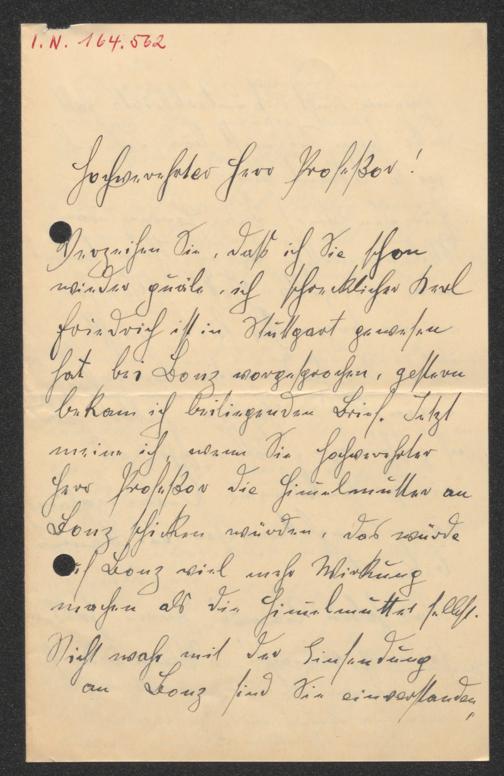 I.N. 164.562
Hochverehrter Herr Profeßor!
Verzeihen Sie, daß ich Sie schon
wieder quäle, ich schrecklicher Kerl
Friedrich ist in Stuttgart gewesen
hat bei Bonz vorgesprochen, gestern
bekam ich beiliegenden Brief. Jetzt
meine ich, wenn Sie hochverehrter
Herr Profeßor die Himelmutter an
Bonz schicken würden, das würde
auf Bonz viel mehr Wirkung
machen als die Himelmutter selbst.
Nicht wahr mit der Einsendung
an Bonz sind Sie einverstanden,